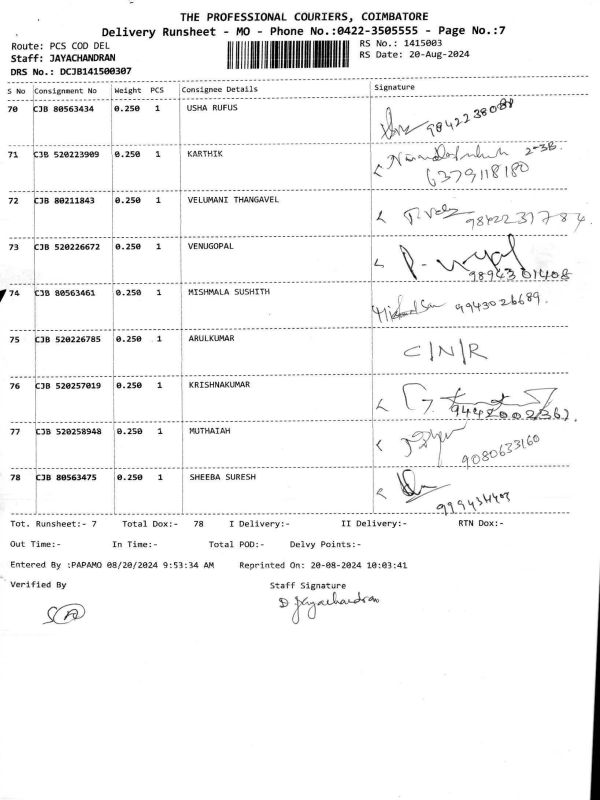 THE PROFESSIONAL COURIERS, COIMBATORE
Delivery Runsheet - MO - Phone No.:0422-3505555 - Page No.:7
Route: PCS COD DEL
RS No.: 1415003
Staff: JAYACHANDRAN
RS Date: 20-Aug-2024
DRS No.: DCJB141500307
S No Consignment No Weight PCS Consignee Details Signature
70 CJB 80563434 0.250 1 USHA RUFUS
71 CJB 520223909 0.250 1 KARTHIK
2-3B.
6379118180
72 CJB 80211843 0.250 1 VELUMANI THANGAVEL
9842231784
73 CJB 520226672 0.250 1 VENUGOPAL
9894301408
74 CJB 80563461 0.250 1 MISHMALA SUSHITH
9943026689.
75 CJB 520226785 0.250 1 ARULKUMAR
C/N/R
76 CJB 520257019 0.250 1 KRISHNAKUMAR
77 CJB 520258948 0.250 1 MUTHAIAH
9080633160
78 CJB 80563475 0.250 1 SHEEBA SURESH
Tot. Runsheet:- 7 Total Dox:- 78 I Delivery:- II Delivery:- RTN Dox:-
Out Time:- In Time:- Total POD:- Delvy Points:-
Entered By :PAPAMO 08/20/2024 9:53:34 AM Reprinted On: 20-08-2024 10:03:41
Verified By Staff Signature
D Jayachandran